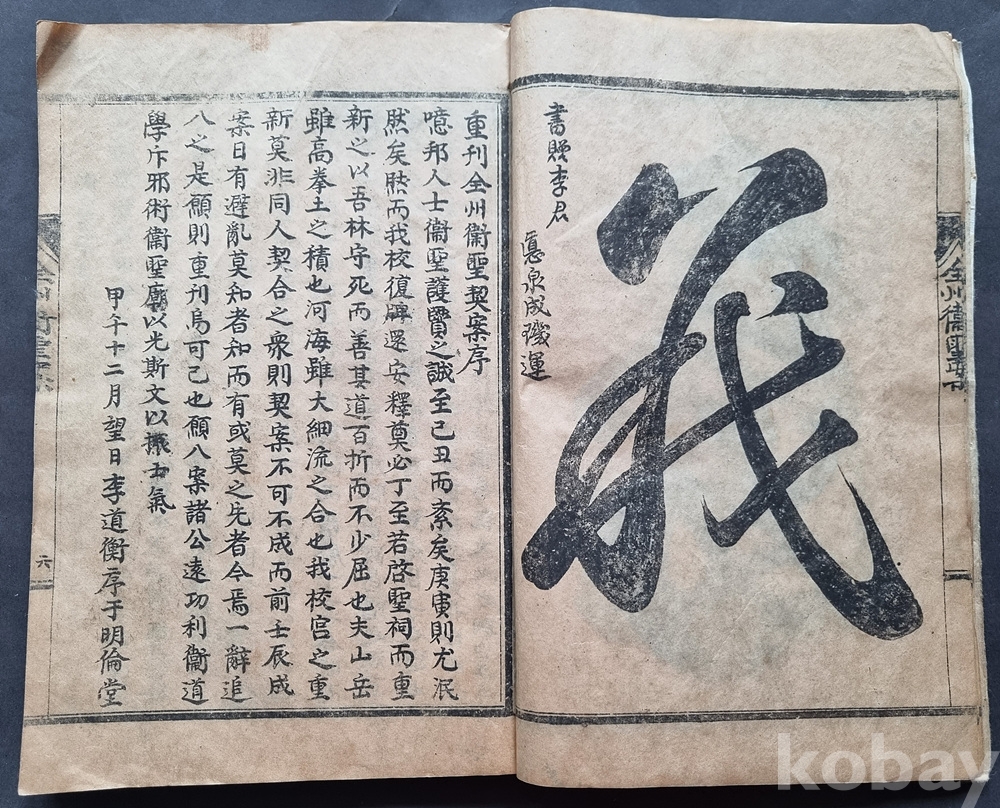 書贈李君
義
惪泉成璣運
全州衛聖契案
重刊全州衛聖契案序
噫邦人士衛聖護賢之誠至己丑而紊矣庚寅則尤泯
然矣然而我校復碑還安釋奠必丁至若啓聖祠而重
新之以吾林守死而善其道百折而不少屈也夫山岳
雖高拳土之積也河海雖大細流之合也我校宮之重
新莫非同人契合之衆則契案不可不成而前壬辰成
案日有遲亂莫知者和而有或莫之先者今焉一辭追
八之是願則重刊烏可已也願八案諸公遠功利衛道
學斥邪術衛聖廟以光斯文以振士氣
甲午十二月望日李道衡序于明倫堂
六
kobay